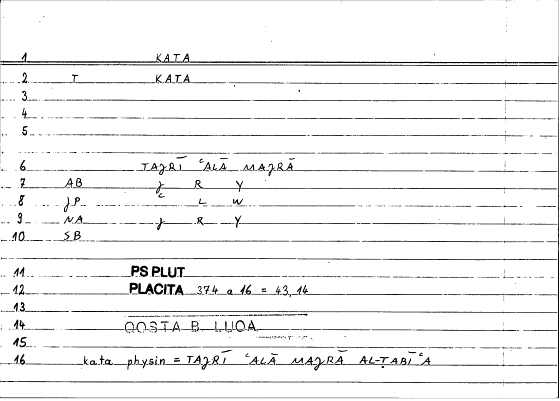 1 KATA
2 T KATA
3
4
5
6 TAJRĪ ʿALĀ MAJRĀ
7 AB J R Y
8 JP ʿ L W
9 NA J R Y
10 SB
11 PS PLUT
12 PLACITA 374 a 16 = 43, 14
13
14 QOSTA B. LUQA
15
16 kata physin = TAJRĪ ʿALĀ MAJRĀ AL-ṬABĪʿA